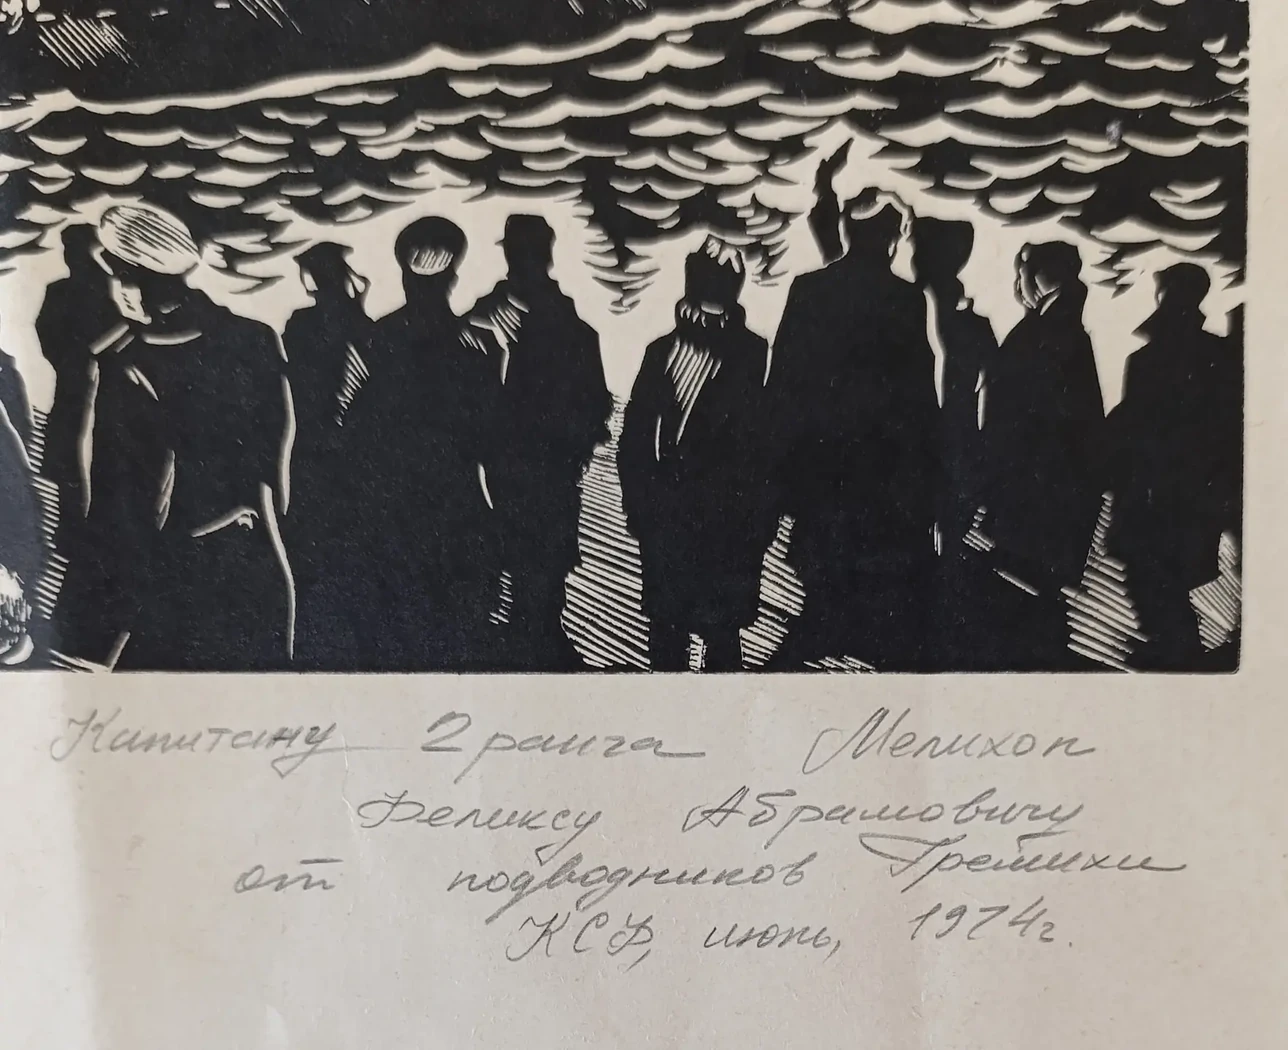 Капитану 2 ранга Мелихоп
Феликсу Абрамовичу
от подводников Гремихи
КСФ, июнь, 1974г.